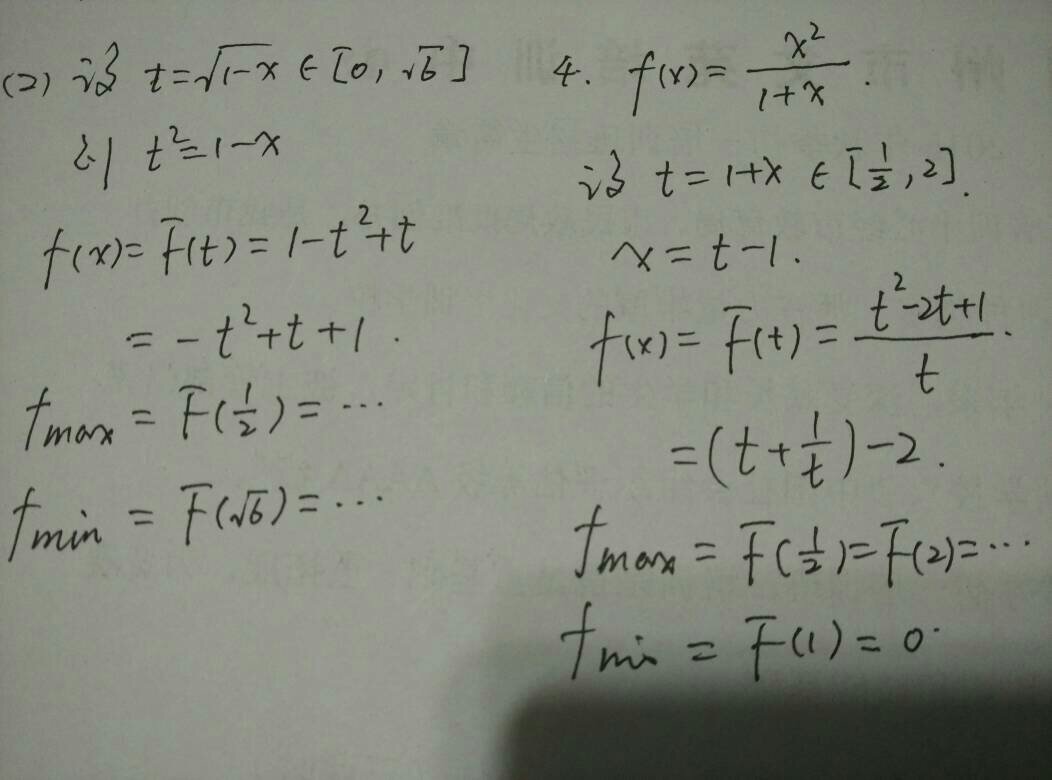 (2) 设 t=√(1-x) ∈ [0, √6]
则 t²=1-x
f(x)=F(t)=1-t²+t
=-t²+t+1.
fmax=F(1/2)=…
fmin=F(√6)=…
4. f(x)=x²/(1+x).
设 t=1+x ∈ [1/2, 2].
x=t-1.
f(x)=F(t)=(t²-2t+1)/t.
=(t+1/t)-2.
fmax=F(1/2)=F(2)=…
fmin=F(1)=0.